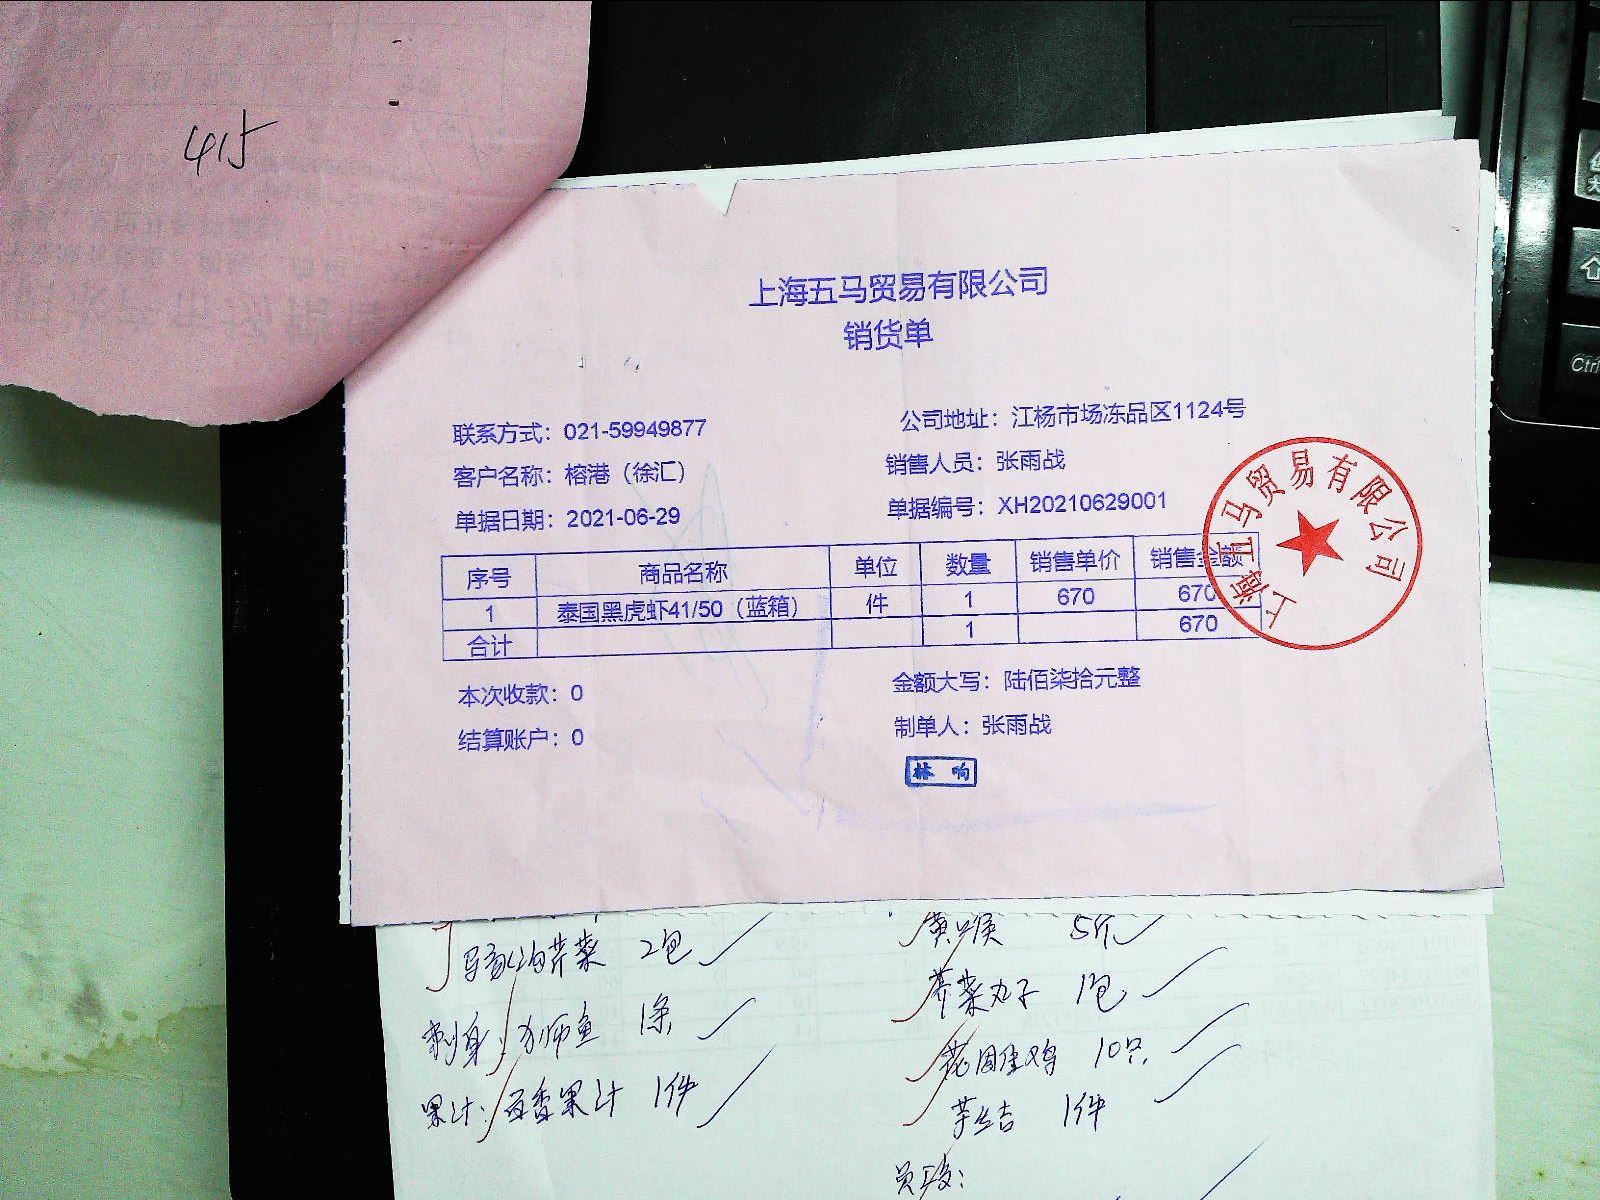 415
上海五马贸易有限公司
销货单
联系方式：021-59949877 公司地址：江杨市场冻品区1124号
客户名称：榕港（徐汇） 销售人员：张雨战
单据日期：2021-06-29 单据编号：XH20210629001
序号 商品名称 单位 数量 销售单价 销售金额
1 泰国黑虎虾41/50（蓝箱） 件 1 670 670
合计 1 670
本次收款：0 金额大写：陆佰柒拾元整
结算账户：0 制单人：张雨战
林响
上海五马贸易有限公司
芹菜 2包 黄喉 5斤
荠菜丸子 1包
刺身：狮鱼 1条
10只
果汁：百香果汁 1件
1件
Ctrl